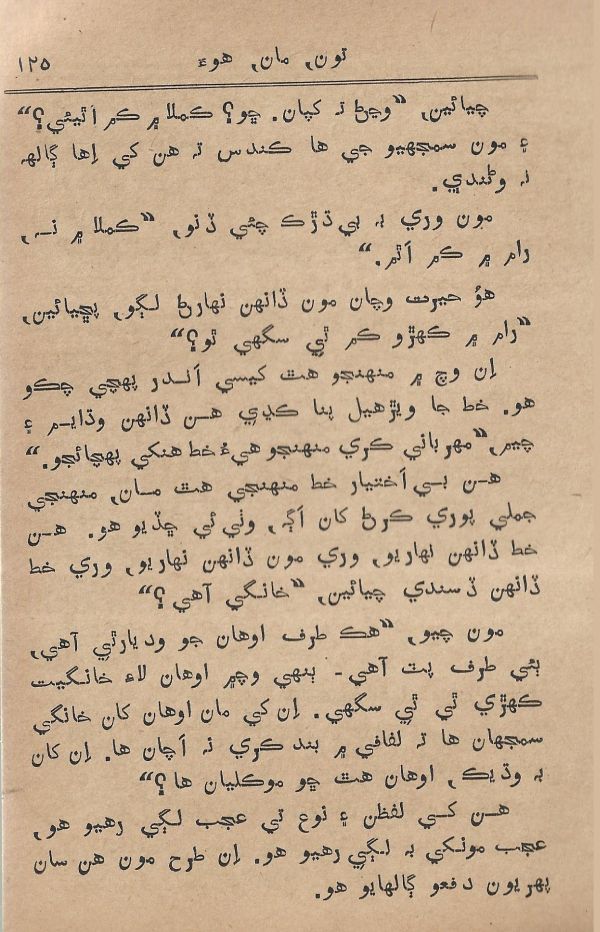 تون، مان، هوءَ ١٢٥
چيائين، ”وڃڻ ته کپان. ڇو؟ ڪملا ۾ ڪم آٿيئي؟“
۽ مون سمجهيو جي ها ڪندس ته هن کي اِها ڳالهه
نه وڻندي.
مون وري به بي ڌڙڪ چئي ڏنو، ”ڪملا ۾ نہ،
رام ۾ ڪم اَٿم.“
هوُ حيرت وچان مون ڏانهن نهارڻ لڳو، پڇيائين،
”رام ۾ ڪهڙو ڪم ٿي سگهي ٿو؟“
اِن وچ ۾ منهنجو هٿ کيسي اَندر پهچي چڪو
هو. خط جا ويڙهيل پنا ڪڍي هن ڏانهن وڌايم ۽
چيم، ”مهرباني ڪري منهنجو هيءُ خط هنکي پهچائجو.“
هن بي اَختيار خط منهنجي هٿ مان، منهنجي
جملي پوري ڪرڻ کان اَڳ، وٺي ئي ڇڏيو هو. هن
خط ڏانهن نهاريو، وري مون ڏانهن نهاريو، وري خط
ڏانهن ڏسندي چيائين، ”خانگي آهي؟“
مون چيو، ”هڪ طرف اوهان جو وديارٿي آهي،
ٻئي طرف پٽ آهي - ٻنهي وچ۾ اوهان لاءِ خانگيت
ڪهڙي ٿي ٿي سگهي. اِن کي مان اوهان کان خانگي
سمجهان ها ته لفافي ۾ بند ڪري نه اَچان ها. اِن کان
به وڌيڪ، اوهان هٿ ڇو موڪليان ها؟“
هن کي لفظن ۽ نوع تي عجب لڳي رهيو هو،
عجب مونکي به لڳي رهيو هو. اِن طرح مون هن سان
پهريون دفعو ڳالهايو هو.